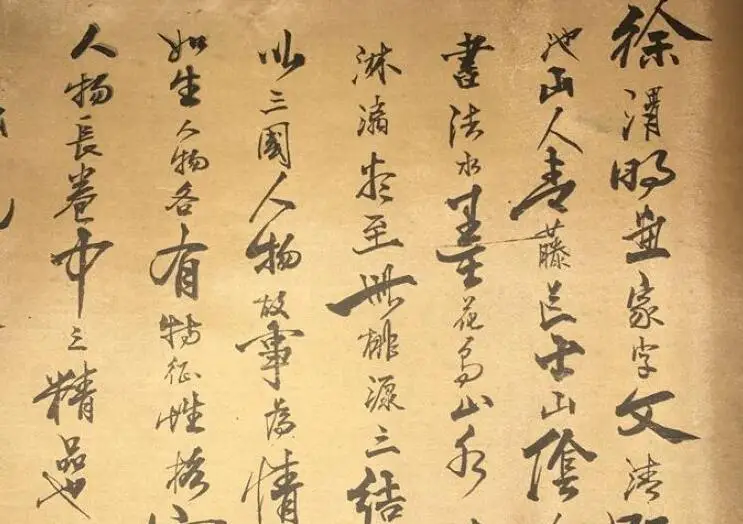 徐渭明畫家字文清
池山人青藤道士山陰
書法水墨花鳥山水
淋漓至桃源三結
以三國人物故事為情
如生人物各有特征性格
人物長卷中之精品也